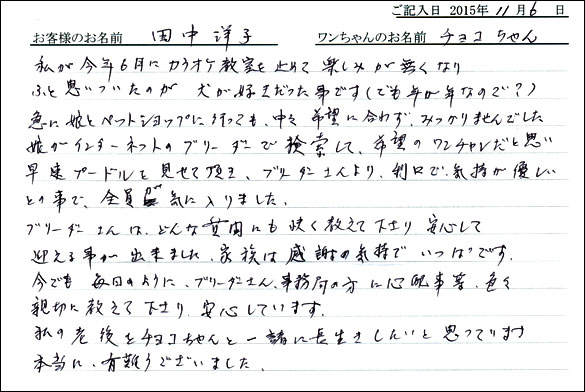 ご記入日 2015年 11月 6 日
お客様のお名前 田中 洋子 ワンちゃんのお名前 チョコちゃん
私が今年6月にカラオケ教室を止めて楽しみが無くなり
ふと思いついたのが 犬が好きだった事です(でも年が年なので?)
急に娘とペットショップに行っても、中々希望に合わず、みつかりませんでした
娘がインターネットのブリーダーで検索して、希望のワンチャンだと思い
早速プードルを見せて頂き、ブリーダーさんより、利口で気持が優しい
との事で、全員 気に入りました。
ブリーダーさんは、どんな質問にも快く教えて下さり 安心して
迎える事が出来ました。家族は感謝の気持でいっぱいです。
今でも 毎日のように、ブリーダーさん、事務局の方に心配事等、色々
親切に教えて下さり、安心しています。
私の老後をチョコちゃんと一諸に長生きしたいと思ってます
本当に、有難うございました。